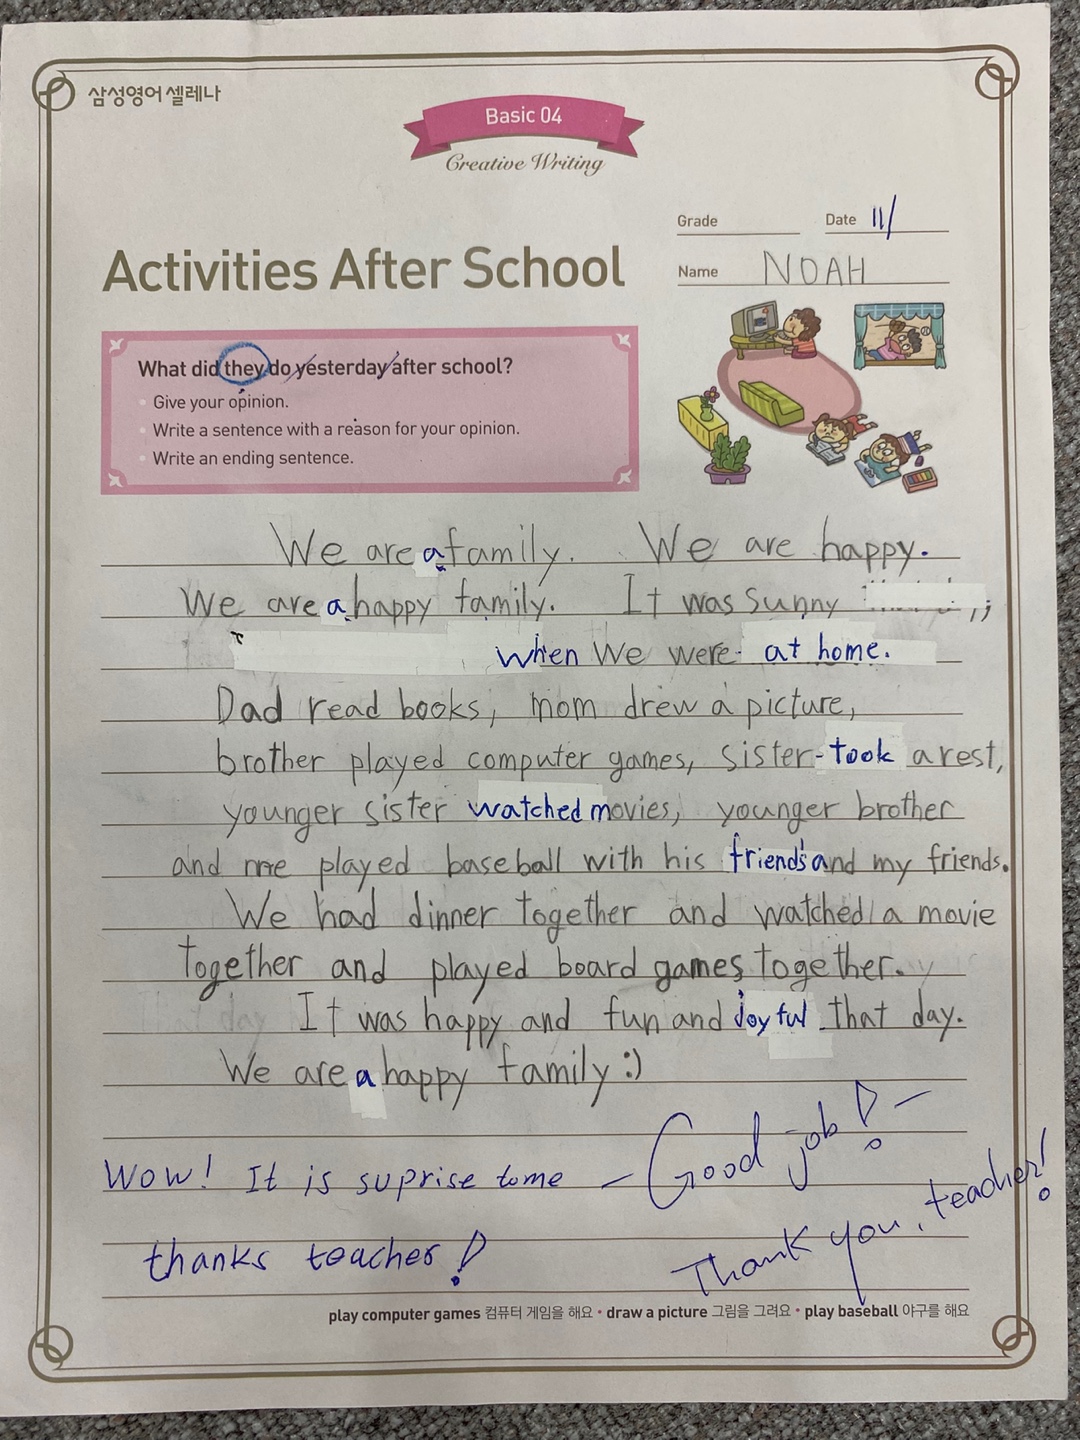 삼성영어 셀레나
Basic 04
Creative Writing
Grade
Date 11/
Activities After School
Name NOAH
What did they do yesterday after school?
Give your opinion.
Write a sentence with a reason for your opinion.
Write an ending sentence.
We are a family. We are happy.
We are a happy family. It was sunny
when we were at home.
Dad read books, mom drew a picture,
brother played computer games, sister took a rest,
younger sister watched movies, younger brother
and me played baseball with his friends and my friends.
We had dinner together and watched a movie
together and played board games together.
It was happy and fun and joyful that day.
We are a happy family :)
Good job!
Wow! It is suprise to me
Thank you, teacher!
thanks teacher!
play computer games 컴퓨터 게임을 해요 • draw a picture 그림을 그려요 • play baseball 야구를 해요